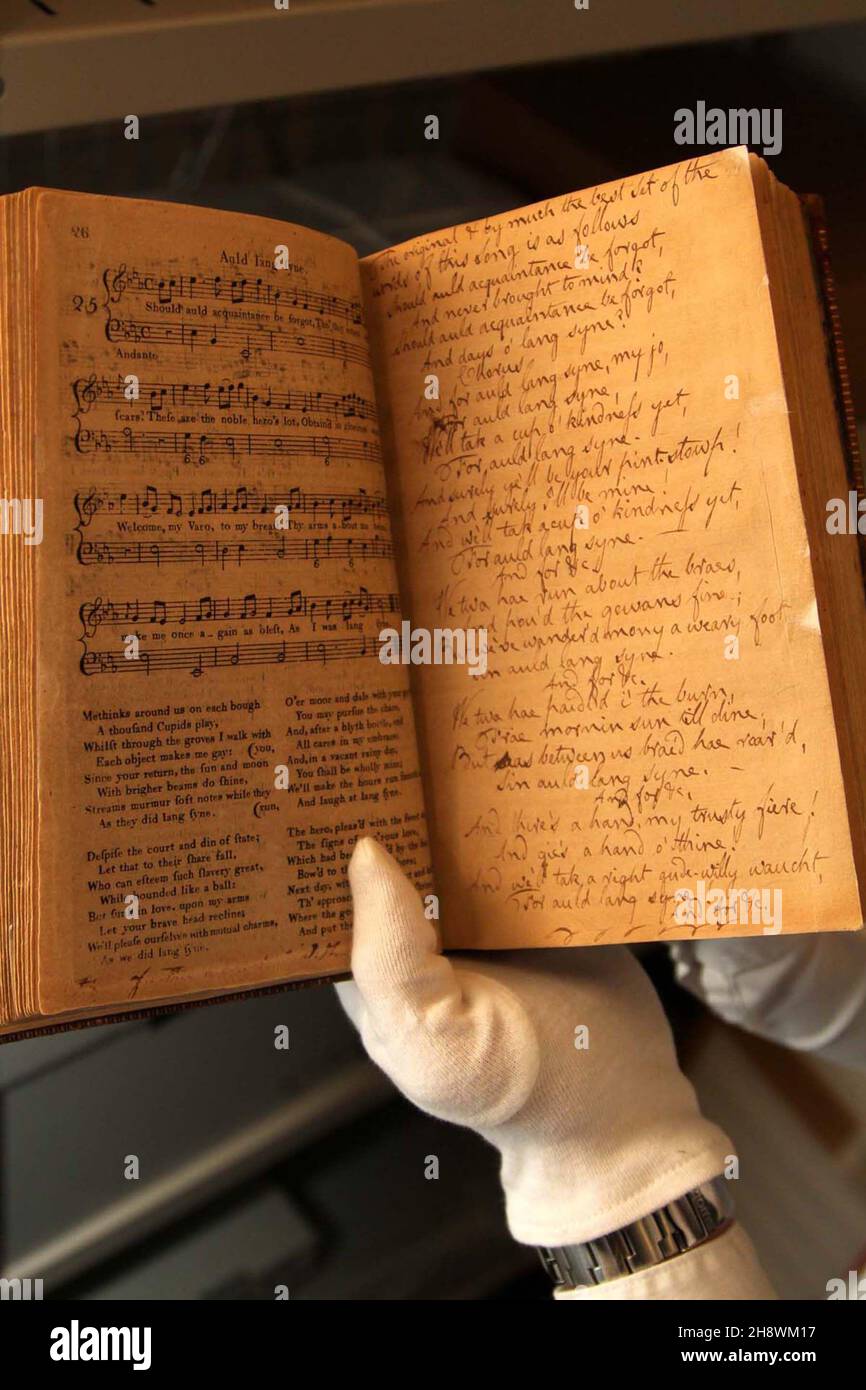 26
Auld lang syne.
25
Should auld acquaintance be forgot, Tho' they
Andante
scars! These are the noble hero's lot, Obtain'd in glorious
6 6 6
Welcome, my Varo, to my breast Thy arms a-bout me
6
make me once a-gain as blest, As I was lang syne
6
Methinks around us on each bough
A thousand Cupids play,
Whilst through the groves I walk with
Each object makes me gay: (you,
Since your return, the sun and moon
With brighter beams do shine,
Streams murmur soft notes while they
As they did lang syne. (run,
Despise the court and din of state;
Let that to their share fall,
Who can esteem such slavery great,
While bounded like a ball:
But sunk in love, upon my arms
Let your brave head recline;
We'll please ourselves with mutual charms,
As we did lang syne.
O'er moor and dale with your
You may pursue the chace,
And, after a blyth bottle, end
All cares in my embrace:
And, in a vacant rainy day,
You shall be wholly mine;
We'll make the hours run
And laugh at lang syne.
The hero, pleas'd with the sweet
The signs of gen'rous love,
Which had been by the
Bow'd to
Next day, with
Th' approach
Where the good
And put the
The original & by much the best set of the
words of this song is as follows
Should auld acquaintance be forgot,
And never brought to mind?
Should auld acquaintance be forgot,
And days o' lang syne?
Chorus
And for auld lang syne, my jo,
For auld lang syne,
We'll tak a cup o' kindness yet,
For auld lang syne.
And surely ye'll be your pint-stowp!
And surely I'll be mine!
And we'll tak a cup o' kindness yet,
For auld lang syne.
And for &c.
We twa hae run about the braes,
And pou'd the gowans fine;
But we've wander'd mony a weary foot
Sin auld lang syne.
And for &c.
We twa hae paidl'd i' the burn,
Frae mornin sun till dine;
But seas between us braid hae roar'd,
Sin auld lang syne.
And for &c.
And there's a hand, my trusty fiere!
And gie's a hand o' thine!
And we'll tak a right gude-willy waught,
For auld lang syne.
And for &c.
alamy
Image ID: 2H8WM17
www.alamy.com